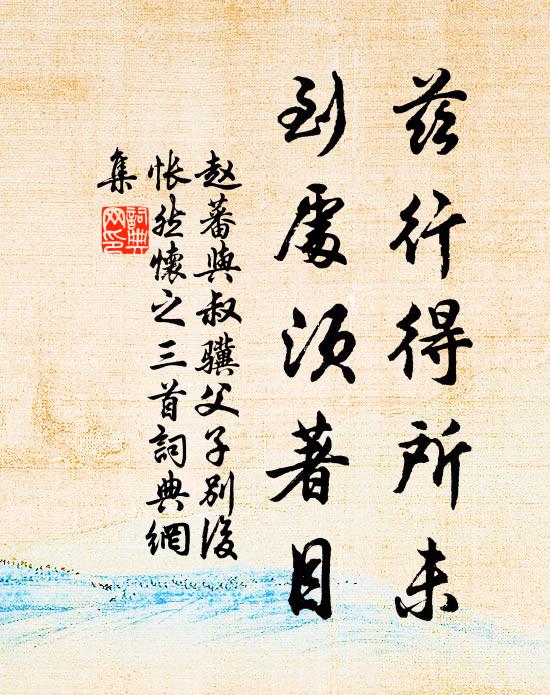 茲行得所未
到處須著目
赵蕃與叔驥父子别後
悵然懷之三首詞典網
集
詞典
网印